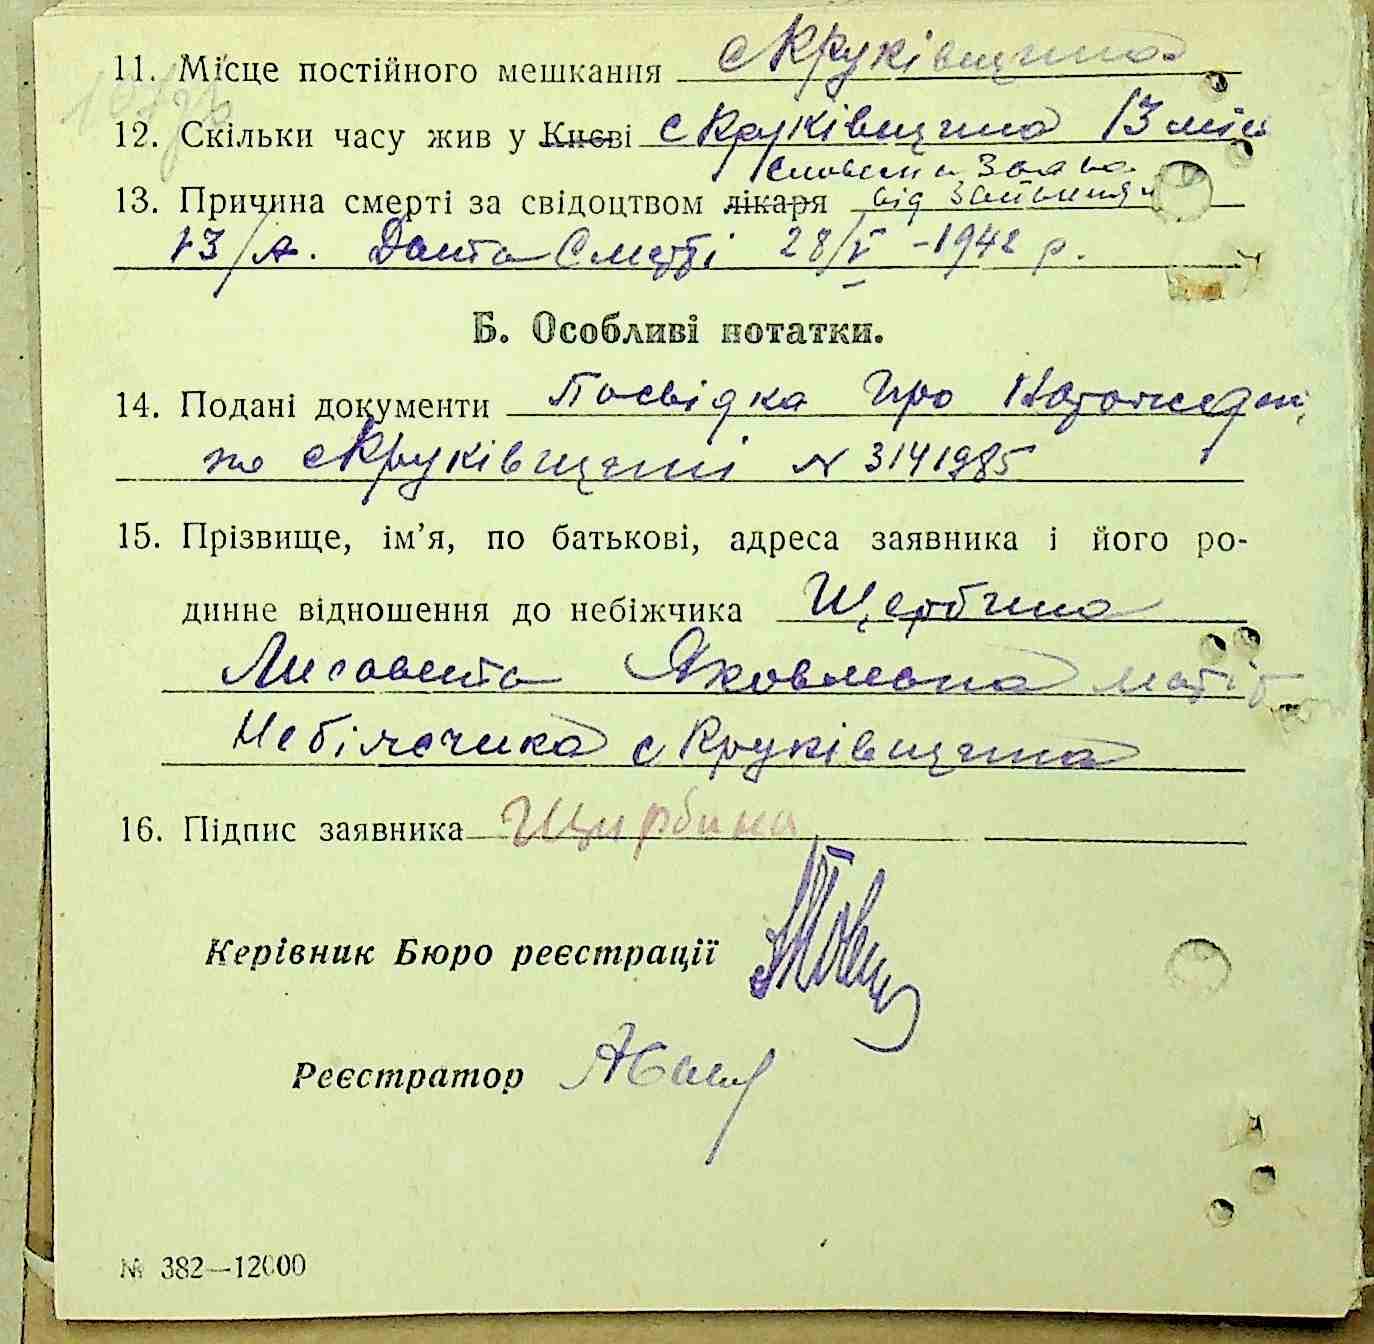 11. Місце постійного мешкання с Круківщина
12. Скільки часу жив у Києві с Круківщина 13 міс
словесна Заява
13. Причина смерті за свідоцтвом лікаря від
13/А. Дата Смерті 28/V – 1942 р.
Б. Особливі нотатки.
14. Подані документи Посвідка про Народжен
с Круківщині N 3141985
15. Прізвище, ім’я, по батькові, адреса заявника і його ро-
динне відношення до небіжчика Щербина
Лисавета Яковлевна
Небіжчика с Круківщина
16. Підпис заявника Щирбина
Керівник Бюро реєстрації
Реєстратор
№ 382—12000